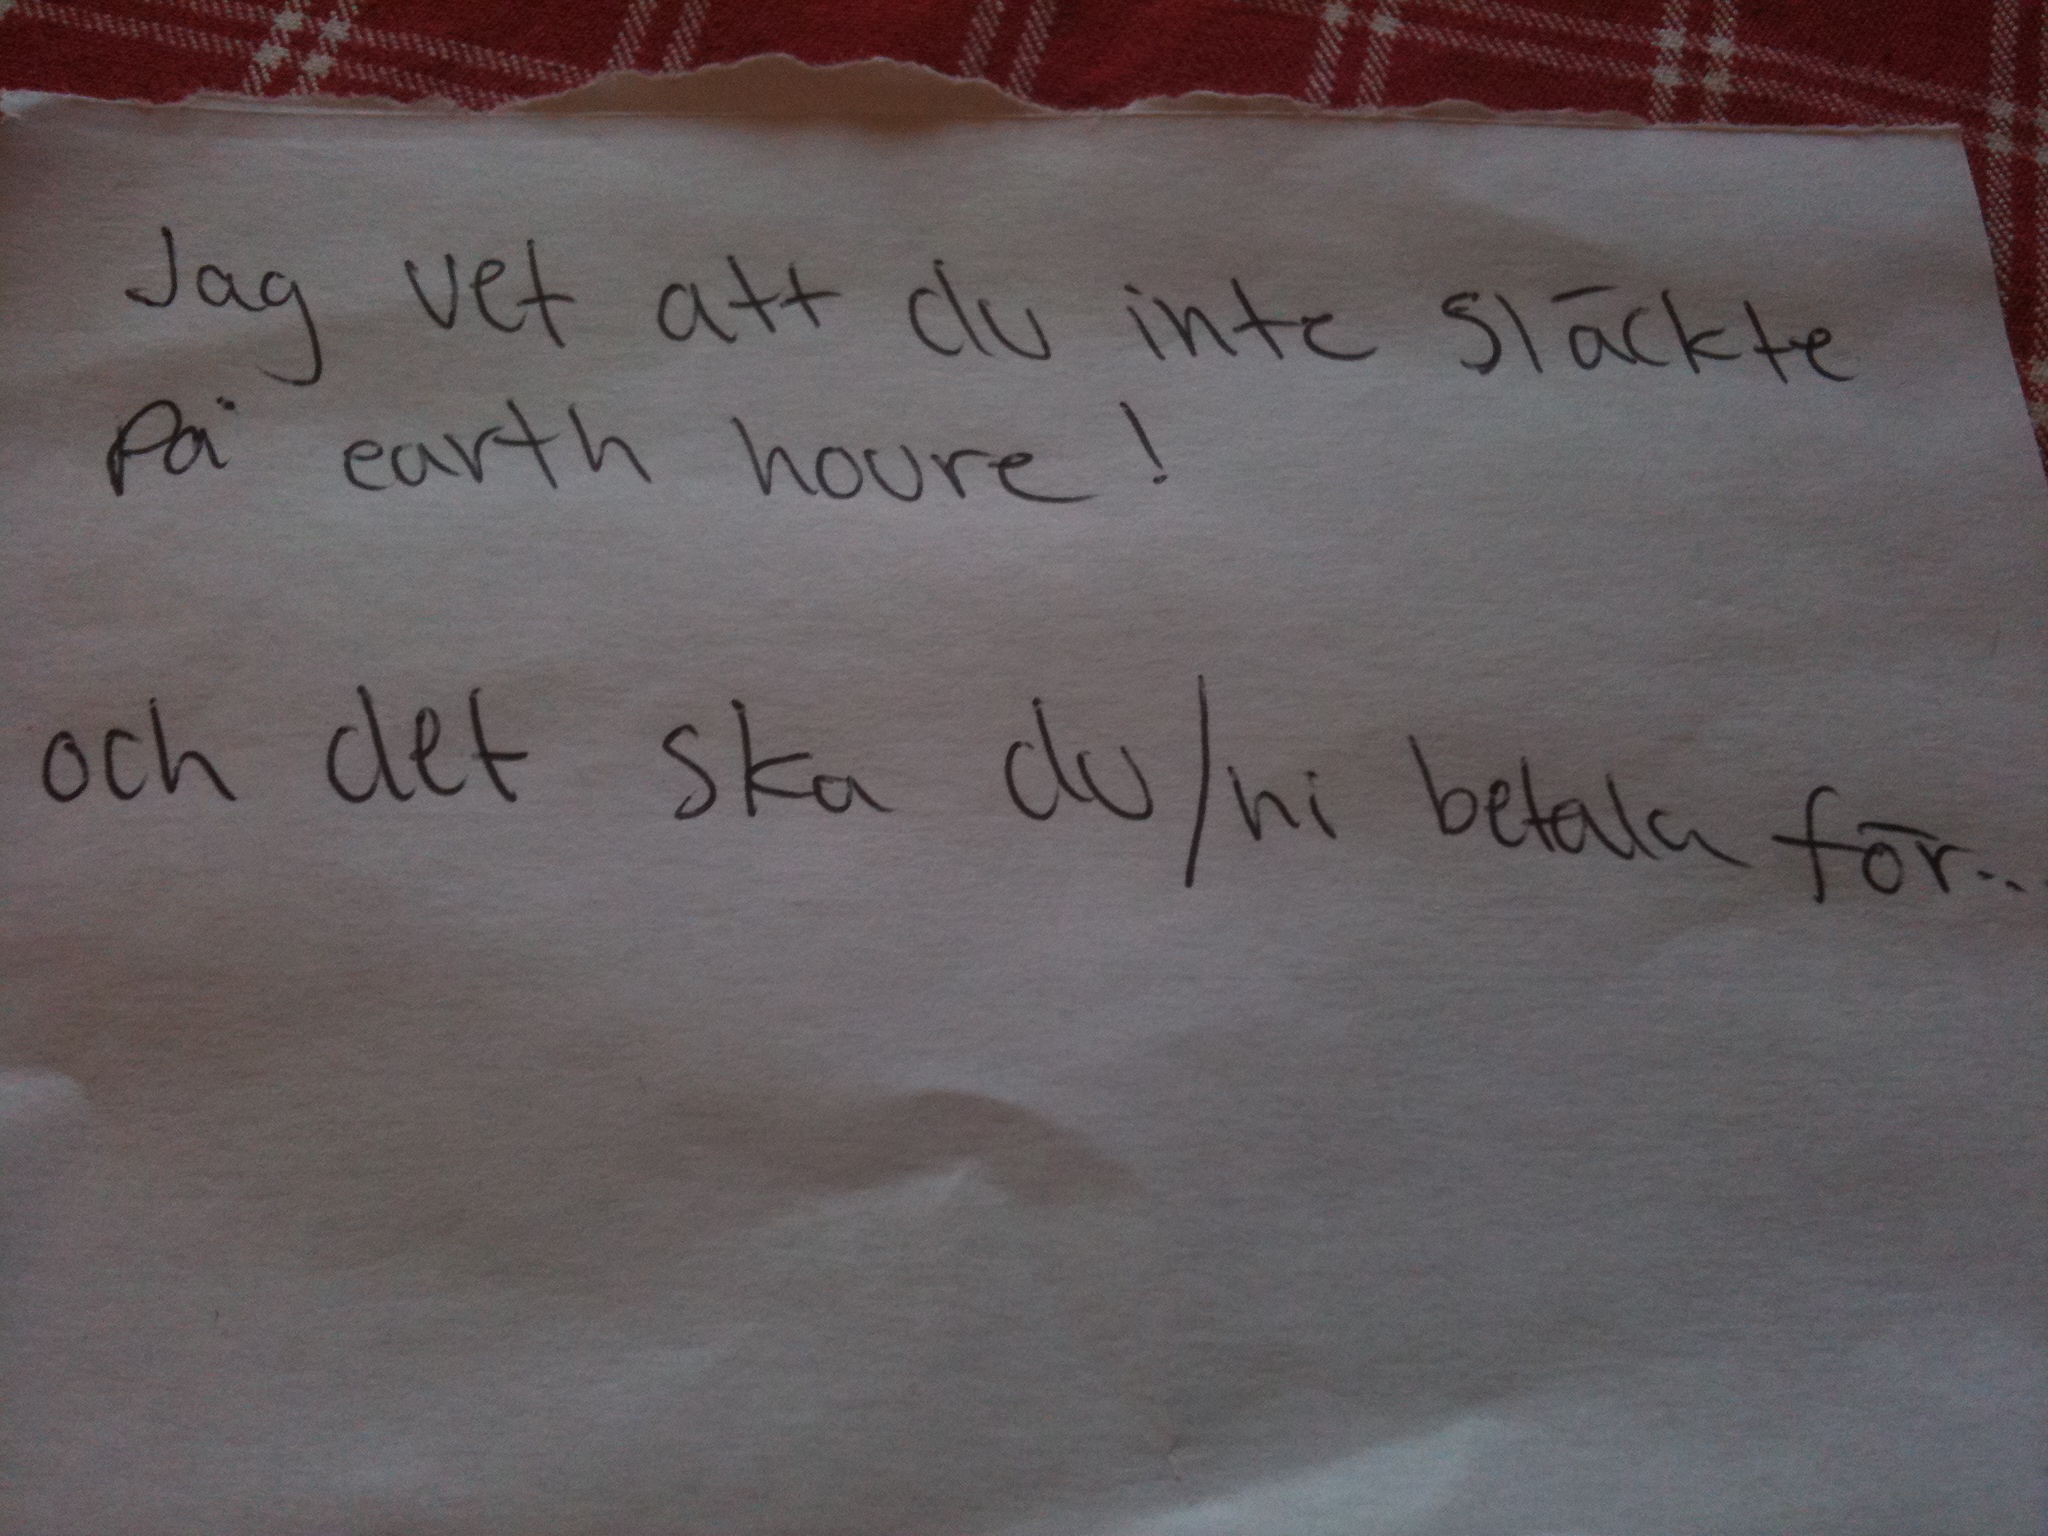 Jag vet att du inte släckte
på earth houre!
och det ska du/ni betala för...